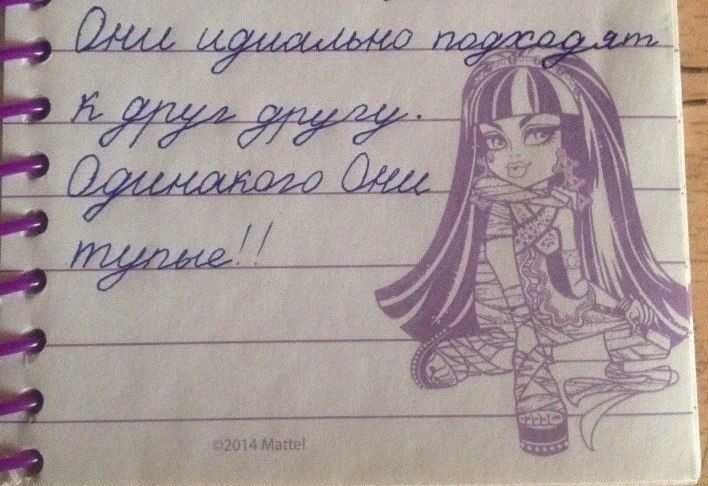 Они идиально подходят
к друг другу.
Одинакого Они
тупые!!
©2014 Mattel